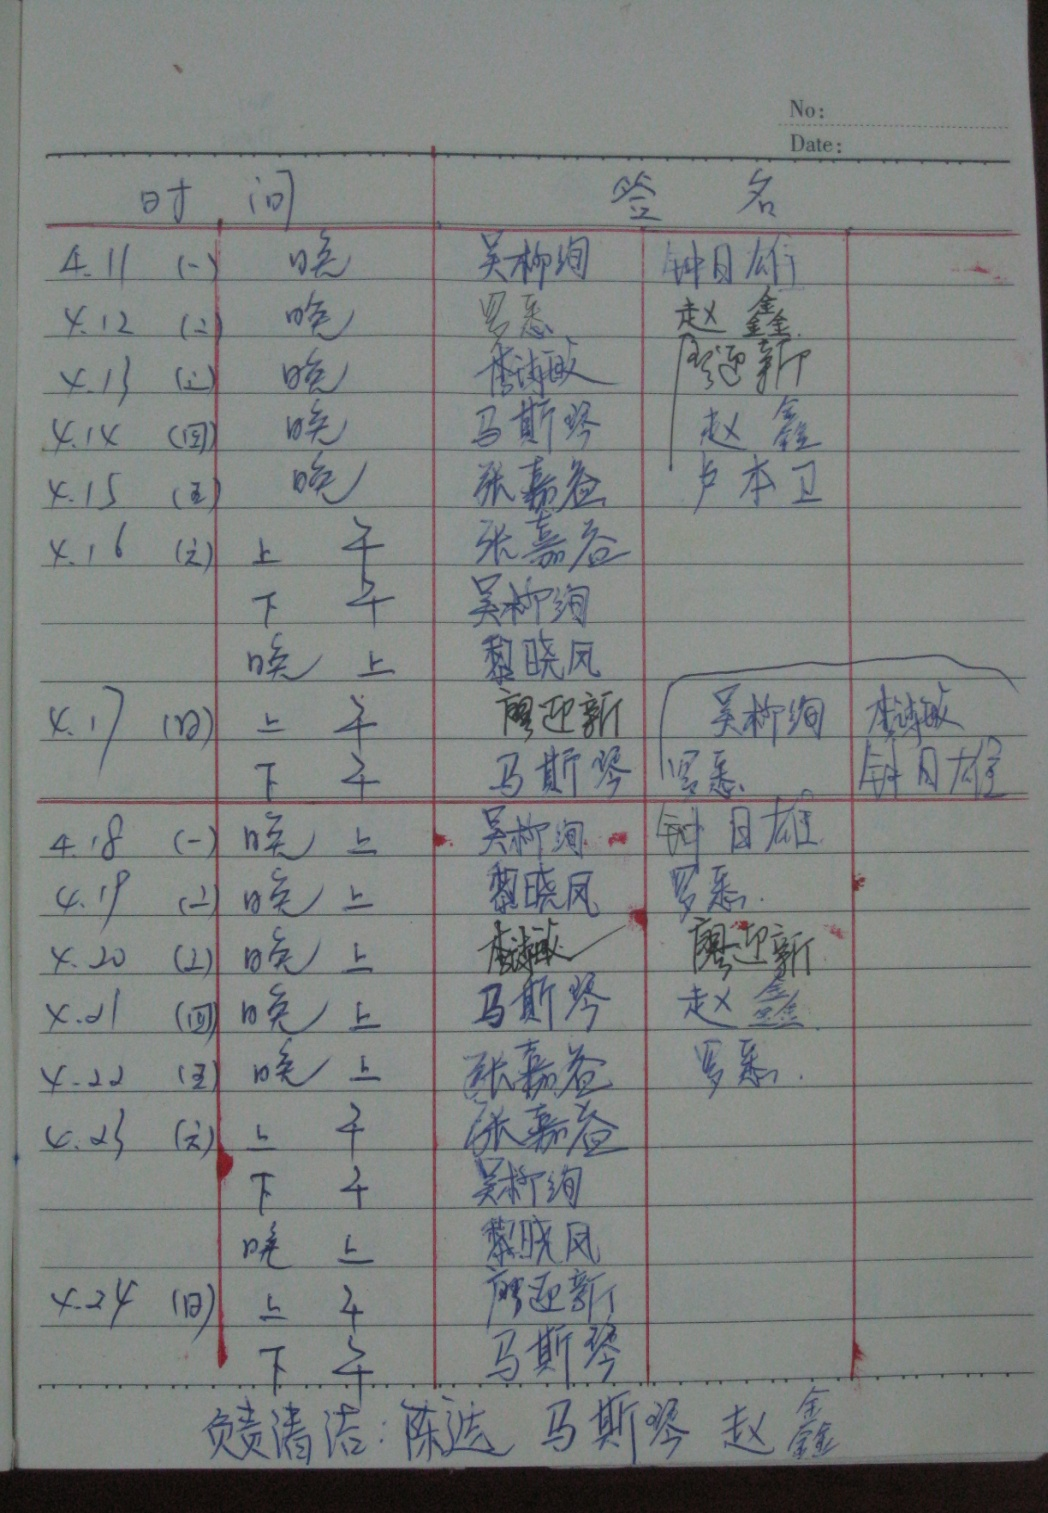 No:
Date:
时 间 签 名
4.11 (一) 晚 吴柳绚 钟目雄
4.12 (二) 晚 罗悉 赵鑫
4.13 (三) 晚 廖迎新
4.14 (四) 晚 马斯琴 赵鑫
4.15 (五) 晚 张嘉益 卢本卫
4.16 (六) 上 午 张嘉益
下 午 吴柳绚
晚 上 黎晓凤
4.17 (日) 上 午 廖迎新 吴柳绚
下 午 马斯琴 罗悉 钟目雄
4.18 (一) 晚 上 吴柳绚 钟目雄
4.19 (二) 晚 上 黎晓凤 罗悉.
4.20 (三) 晚 上 廖迎新
4.21 (四) 晚 上 马斯琴 赵鑫
4.22 (五) 晚 上 张嘉益 罗悉.
4.23 (六) 上 午 张嘉益
下 午 吴柳绚
晚 上 黎晓凤
4.24 (日) 上 午 廖迎新
下 午 马斯琴
负责清洁: 马斯琴 赵鑫